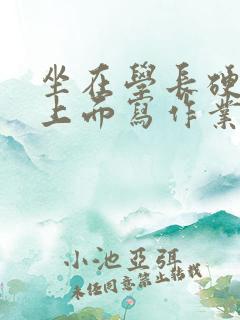 坐在學長硬
上而寫作業
小池亞弭
未经同意禁止转载